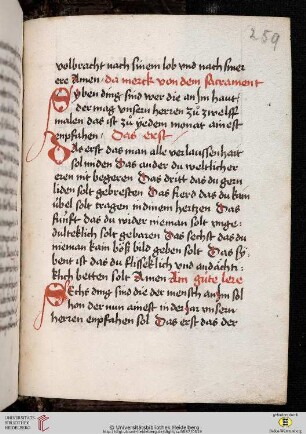 259
volbracht nach sinem lob vnd nach siner
ere Amen / da merck von dem sacrament
Syben ding sind wer die an Jm haut
der mag vnsern herren zů zwelff
malen das ist zů yedem monat ainest
enpfahen / Das erst
Das erst das man alle verlaussenhait
sol miden Das ander du weltlicher
eren nit begeren Das dritt das du gern
liden solt gebresten Das fierd das du kain
übel solt tragen in dinem hertzen Das
fünfft das du wider nieman solt vnge-
dulteklich solt gebaren Das sechst das du
nieman kain böß bild geben solt Das sy
bent ist das du flisseklich vnd andächt-
klich betten solt Amen Ain gůte lere
Sechs ding sind die der mensch an Jm sol
hon der nun ainest in der Jar vnsern
herren enpfahen sol Das erst das der
UNIVERSITÄTS-
BIBLIOTHEK
HEIDELBERG
© Universitätsbibliothek Heidelberg